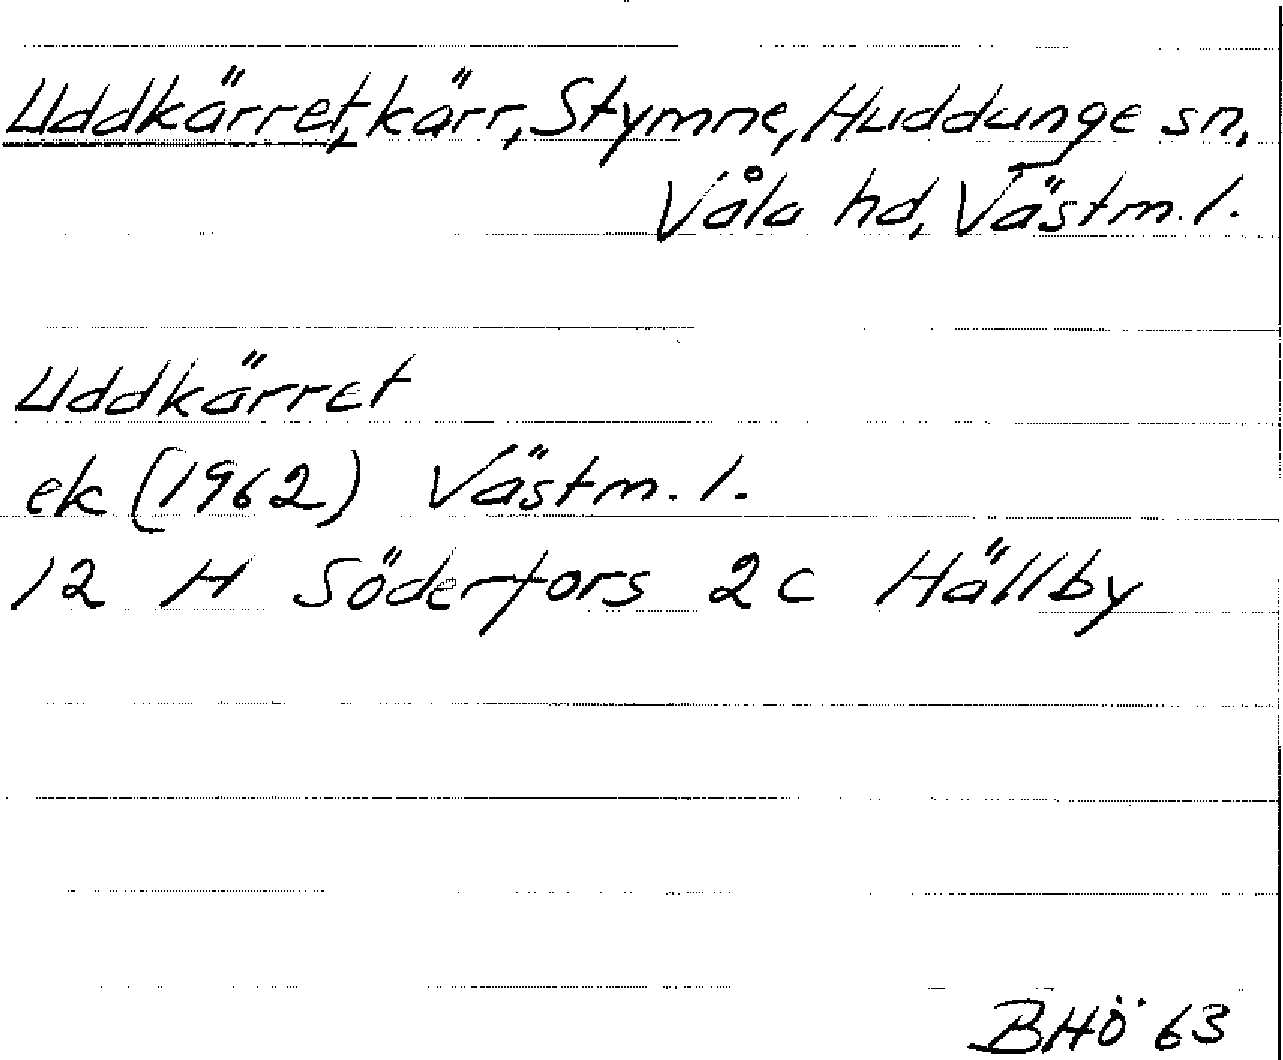 Uddkärret, kärr, Stymne, Huddunge sn,
Våla hd, Västm. l.
Uddkärret
ek (1962) Västm. l.
12 H Söderfors 2 c Hällby
BHÖ 63